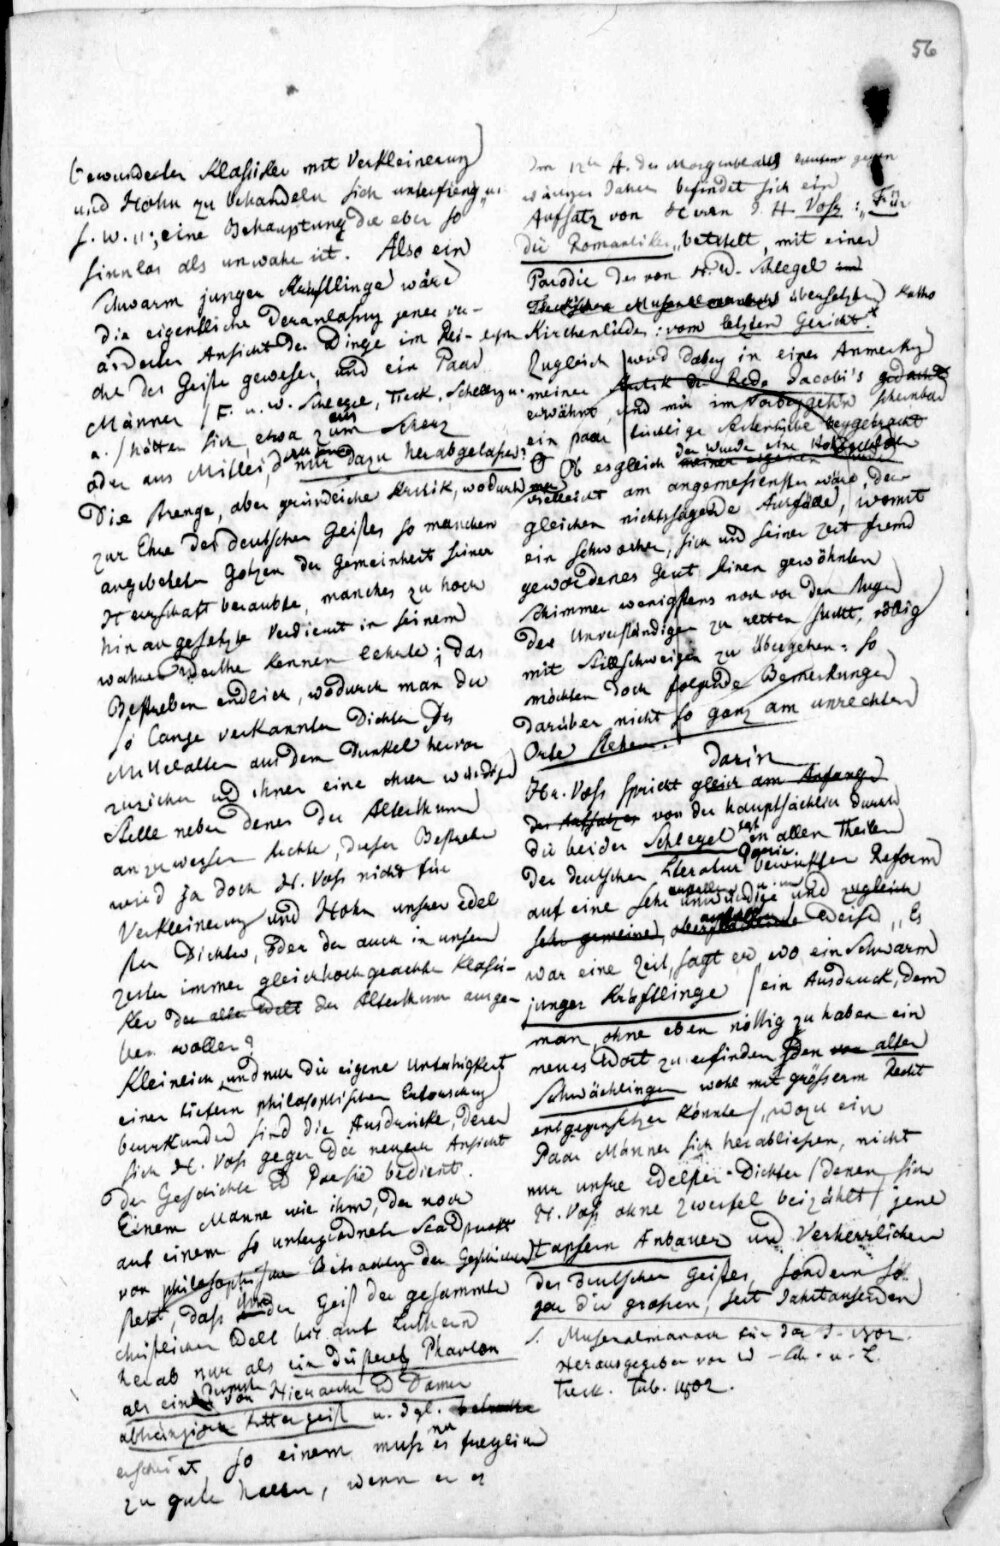 56
Im 12ten St. des Morgenblatts gegen
wärtigen Jahres befindet sich ein
Aufsatz von Herrn J. H. Voß: „Für
die Romantiker" betitelt, mit einer
Parodie des von A. W. Schlegel
übersetzten Katho
Kirchenliedes: vom letzten Gericht.
Zugleich wird dabey in einer Anmerkung
meiner Antik der Rede Jacobi's gedacht
erwähnt, und mir im Vorbeygehn scheinbar
ein paar tüchtige Seitenhiebe beygebracht
Ob es gleich
vielleicht am angemessensten wäre, der
gleichen nichtssagende Ausfälle, womit
ein schwacher, sich und seiner Zeit fremd
gewordenes Geist seinen gewöhnten
Schimmer wenigstens noch vor den Augen
des Unverständigen zu retten sucht, völlig
mit Stillschweigen zu übergehen: so
möchten doch folgende Bemerkungen
darüber nicht so ganz am unrechten
Orte stehen.
darin
Hr. Voß spricht gleich am Anfange
des Aufsatzes von der hauptsächlich durch
die beiden Schlegel in allen Theilen
der deutschen Literatur bewirkten Reform
auf eine sehr unwürdige und zugleich
sehr gemeine, Weise „Es
war eine Zeit, sagt er, wo ein Schwarm
junger Kräftlinge (ein Ausdruck, dem
man, ohne eben nöthig zu haben ein
neues Wort zu erfinden, den von alten
Schwächlingen wohl mit größerm Recht
entgegensetzen könnte), wozu ein
Paar Männer sich herabließen, nicht
nur unsre edelsten Dichter (denen sich
H. Voß ohne Zweifel beizählt) jene
tapfern Anbauer und Verherrlicher
des deutschen Geistes, sondern so
gar die großen, seit Jahrtausenden
s. Musenalmanach für das J. 1802.
Herausgegeben von W. Sch. u. L.
Tieck. Tüb. 1802.
bewunderten Klassiker mit Verkleinerung
und Hohn zu behandeln sich unterfieng" u.
s. w.; eine Behauptung die eben so
sinnlos als unwahr ist. Also ein
Schwarm junger Kräftlinge wäre
die eigentliche Veranlassung jener ver-
änderten Ansicht der Dinge im Rei-
che des Geistes gewesen, und ein Paar
Männer (F. u. W. Schlegel, Tieck, Schelling u.
a.) hätten sich etwa zum Scherz
oder aus Mitleid nur dazu herabgelassen?
Die strenge, aber gründliche Kritik, wodurch man
zur Ehre des deutschen Geistes so manchen
angebeteten Götzen der Gemeinheit seiner
Herrschaft beraubte, manches zu hoch
hinaufgesetzte Verdienst in seinem
wahren Werthe kennen lehrte; das
Bestreben endlich, wodurch man die
so lange verkannten Dichter des
Mittelalters aus dem Dunkel hervor
zuziehen und ihnen eine ehrenwürdige
Stelle neben denen des Alterthums
anzuweisen suchte, dieses Bestreben
wird ja doch H. Voß nicht für
Verkleinerung und Hohn unsrer edel
sten Dichter, oder der auch in unsern
Zeiten immer gleich hochgeachteten Klassi-
ker der alten Welt des Alterthums ausge-
ben wollen?
Kleinlich, und nur die eigene Unfähigkeit
einer tiefern philosophischen Erforschung
beurkundend sind die Ausdrücke, deren
sich H. Voß gegen die neuere Ansicht
der Geschichte und Poesie bedient.
Einem Manne wie ihm, der noch
auf einem so untergeordneten Standpunkt
von philosophischer Betrachtung der Geschichte
steht, daß ihm der Geist der gesammten
christlichen Welt bis auf Luthern
herab nur als ein düsteres Phantom
als ein durch von Hierarchie und Damen
abhängiger Rittergeist u. dgl.
erscheint, so einem muß man es freylich
zu gute halten, wenn er es